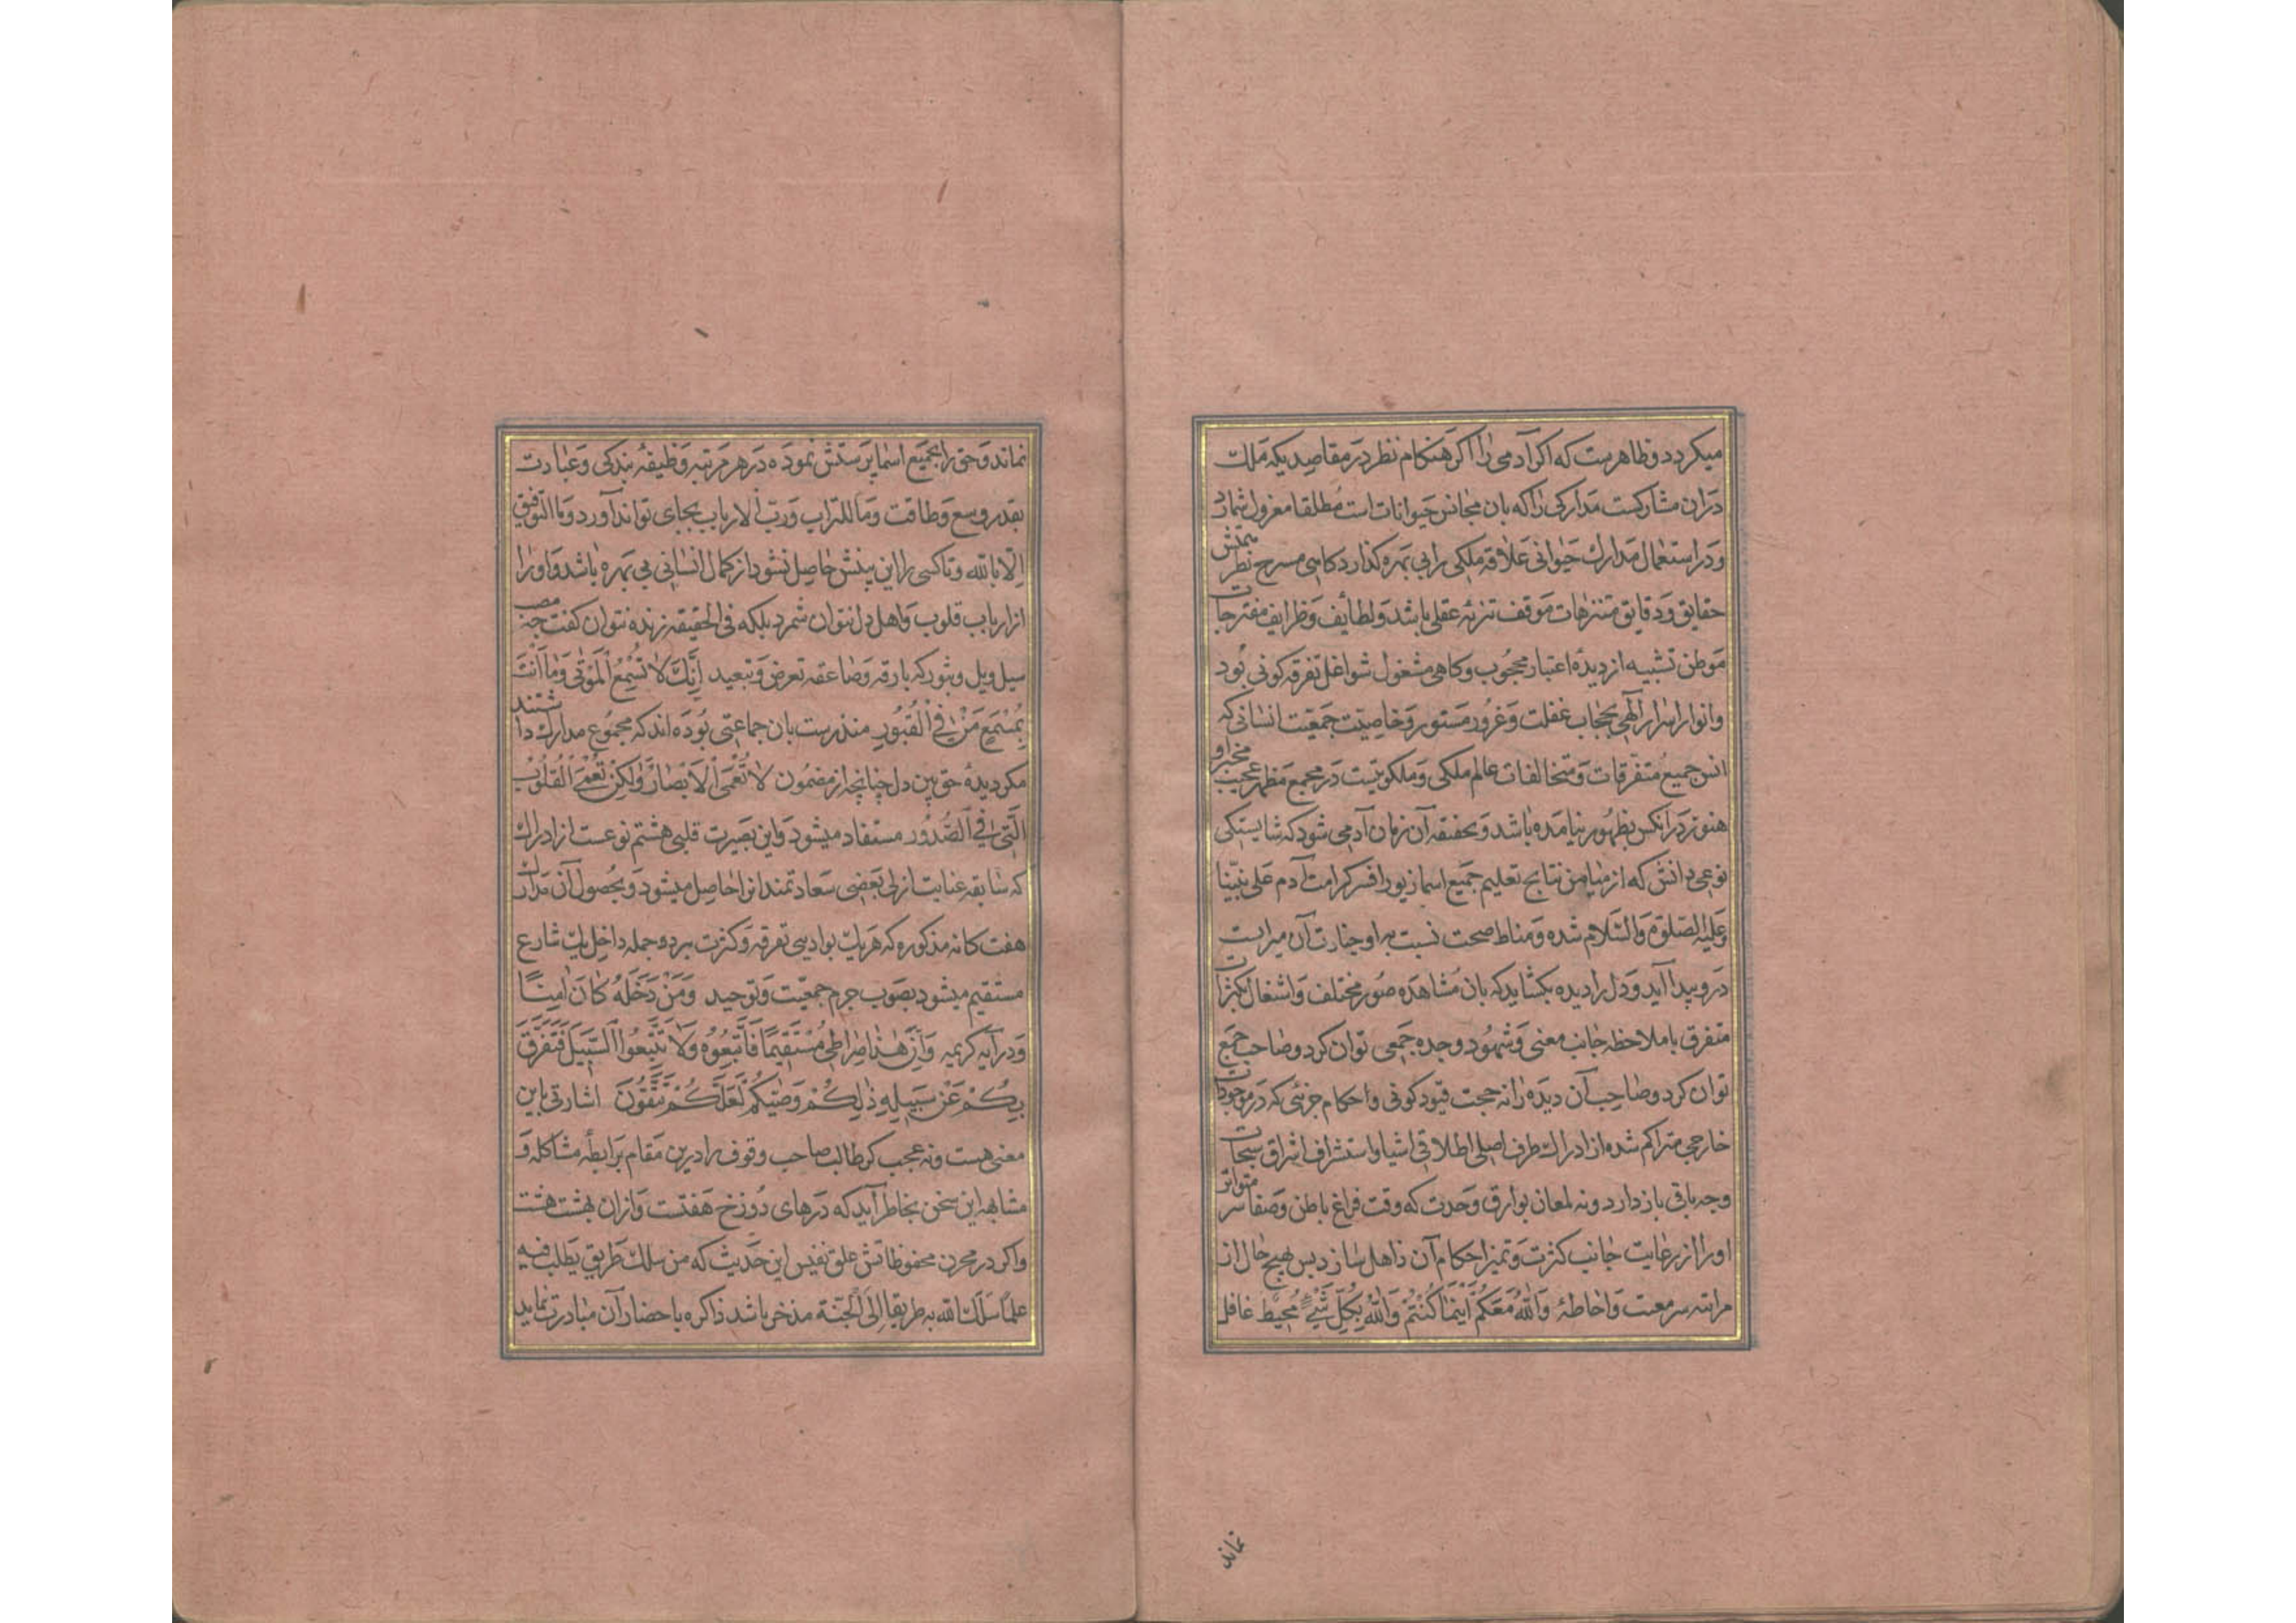 میکردد و ظاهرست که اکر آدمی را اکر هنکام نظر در مقاصدیکه ملک
دران مشارکست مدارکی را که بان مجانس حیوانات است مطلقا معزول شمارد
و در استعمال مدارک حیوانی علاقه ملکی را بی بهره کذارد کاهی مسرح نظر
حقایق و دقایق متنزهات موقف تنزیه عقلی باشد و لطایف و ظرایف متفرجات
موطن تشبیه از دیدۀ اعتبار محجوب و کاهی مشغول شواغل تفرقه کونی بود
و انوار اسرار الهی بحجاب غفلت و غرور مستور و خاصیت جمعیت انسانی که
انس جمیع متفرقات و متخالفات عالم ملکی و ملکوتیست در مجمع مظهر عجیب
هنوز در انکس بظهور نیامده باشد و بحقیقه آن زمان آدمی شود که شایستکی
نوعی دانش که از میامن نتایج تعلیم جمیع اسما زیور افسر کرامت آدم علی نبینا
وعلیه الصلوة والسلام شده و مناط صحت نسبت به او حیازت آن میراث
در و پیدا آید و دل را دیده بکشاید که بان مشاهده صور مختلف و اشغال بکثرات
متفرق با ملاحظه جانب معنی و شهود وحده جمعی توان کرد و صاحب جمع
توان کرد و صاحب آن دیده را نه حجت قیود کونی و احکام جزئی که در موجودات
خارجی متراکم شده از ادراک طرف اصلی اطلاقی اشیا و استشراف اشراق سبحات
وجه باقی باز دارد و نه لمعان بوارق وحدت که وقت فراغ باطن و صفا سر متواتر
او را از رعایت جانب کثرت و تمیز احکام آن ذاهل سازد پس بهیچ حال از
مراتبه سر معیت و احاطۀ والله معکم اینما کنتم والله بکل شیء محیط غافل
نماند
نماند و حق را بجمیع اسما پرستش نموده در هر مرتبه وظیفۀ بندکی و عبادت
بقدر وسع و طاقت وما للتراب ورب الارباب بجای تواند آورد وما التوفیق
الا بالله و تا کسی را این بینش حاصل نشود از کمال انسانی بی بهره باشد و او را
از ارباب قلوب و اهل دل نتوان شمرد بلکه فی الحقیقه زنده نتوان کفت چه مصب
سیل ویل و ثبور که بارقه و صاعقه تعرض و تبعید إنك لا تسمع الموتى وما أنت
بمسمع من في القبور منذرست بان جماعتی بوده اند که مجموع مدارک داشتند
مکر دیدۀ حق بین دل چنانچه از مضمون لا تعمى الأبصار ولكن تعمى القلوب
التي في الصدور مستفاد میشود و این بصیرت قلبی هشتم نوعست از ادراک
که سابقه عنایت ازلی بعضی سعادتمندانرا حاصل میشود و بحصول آن مدارک
هفت کانه مذکوره که هر یک بوادیی تفرقه و کثرت برد و جمله داخل یک شارع
مستقیم میشود بصوب حرم جمعیت و توحید ومن دخله كان آمنا
و در آیه کریمه وأن هذا صراطي مستقيما فاتبعوه ولا تتبعوا السبل فتفرق
بكم عن سبيله ذلكم وصيكم لعلكم تتقون اشارتی باین
معنی هست و نه عجب کر طالب صاحب وقوف را درین مقام برابطۀ مشاکله و
مشابهه این سخن بخاطر آید که درهای دوزخ هفتست و ازان بهشت هشت
و اکر در مخزن محفوظاتش علق نفیس این حدیث که من سلك طريق يطلب فيه
علما سلك الله به طريقا إلى الجنة مذخر باشد ذاکره باحضار آن مبادرت نماید